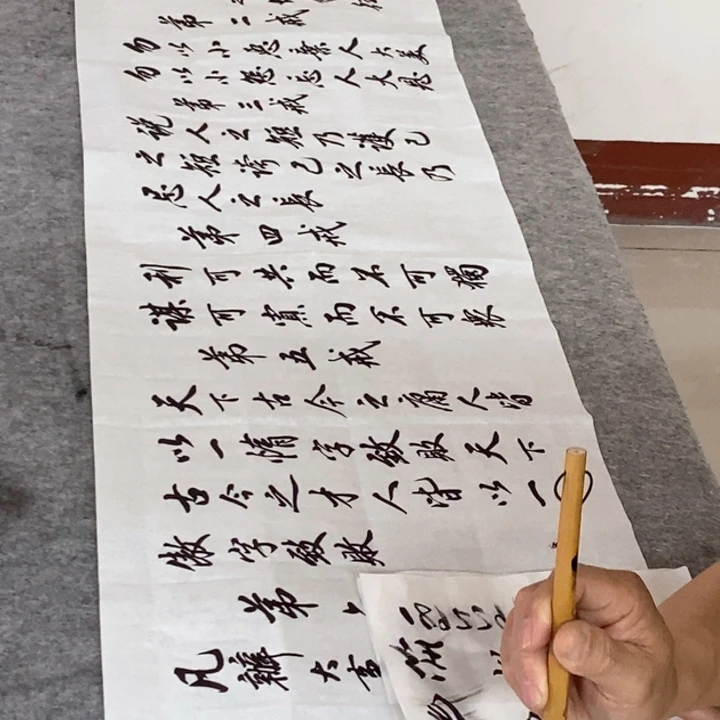 第二戒
勿以小惡棄人大美
勿以小怨忘人大恩
第三戒
说人之短乃護己
之短誇己之長乃
忌人之長
第四戒
利可共而不可獨
謀可寡而不可衆
第五戒
天下古今之庸人皆
以一惰字致敗天下
古今之才人皆以一
傲字致敗
第
凡辦大事